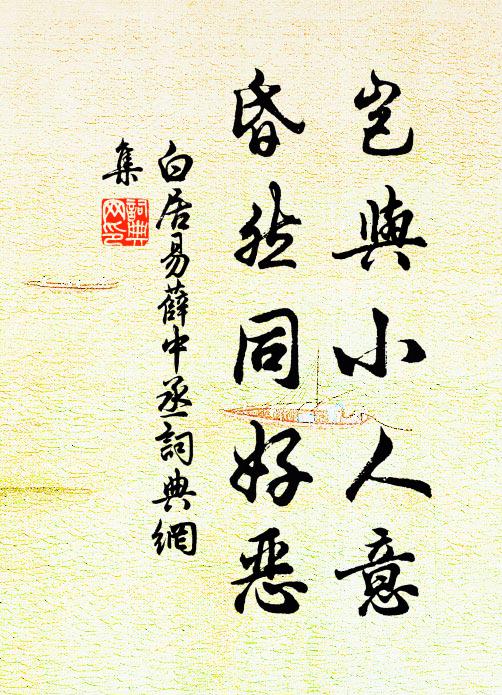 岂與小人意
昏然同好恶
白居易薛中丞詞典網
集
詞典
网印